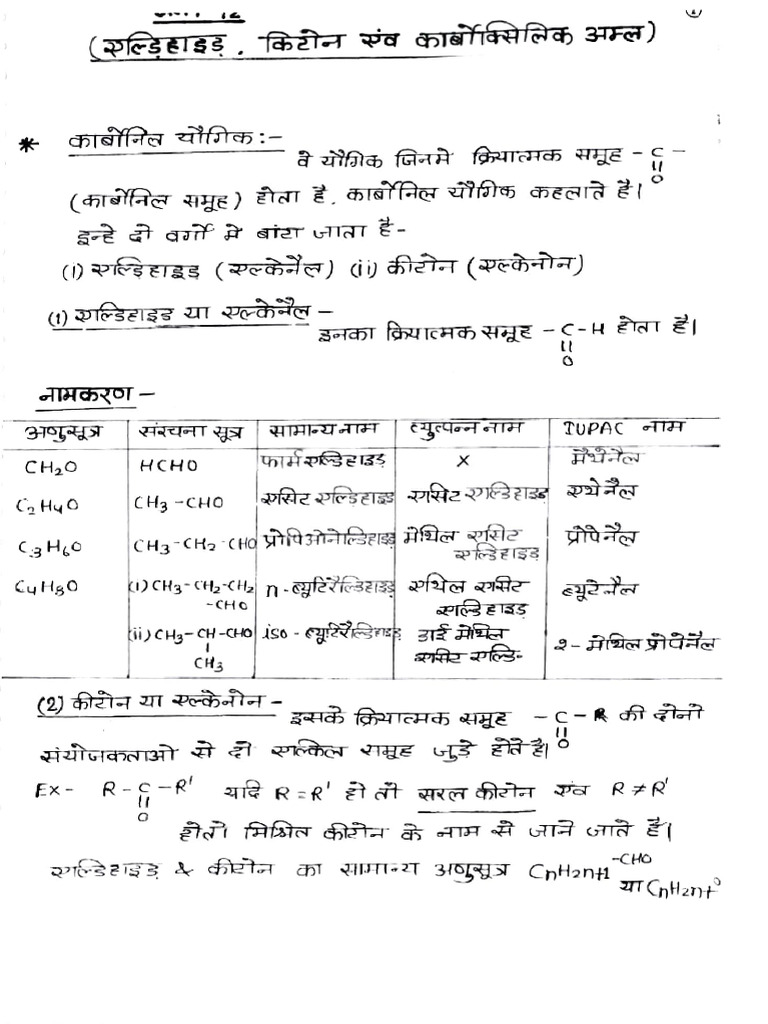 (एल्डिहाइड, किटोन एंव कार्बोक्सिलिक अम्ल)
* कार्बोनिल यौगिक:-
वे यौगिक जिनमे क्रियात्मक समूह -C-
||
O
(कार्बोनिल समूह) होता है, कार्बोनिल यौगिक कहलाते है।
इन्हे दो वर्गो मे बांटा जाता है-
(i) एल्डिहाइड (एल्केनैल) (ii) कीटोन (एल्केनोन)
(1) एल्डिहाइड या एल्केनैल-
इनका क्रियात्मक समूह -C-H होता है।
||
O
नामकरण-
अणुसूत्र संरचना सूत्र सामान्य नाम व्युत्पन्न नाम IUPAC नाम
CH2O HCHO फार्मएल्डिहाइड x मैथेनैल
C2H4O CH3-CHO एसिट एल्डिहाइड एसिट एल्डिहाइड एथेनैल
C3H6O CH3-CH2-CHO प्रोपिओनोल्डिहाइड मेथिल एसिट एल्डिहाइड प्रोपेनैल
C4H8O (i) CH3-CH2-CH2-CHO n-ब्यूटिरैल्डिहाइड एथिल एसिट एल्डिहाइड ब्यूटेनैल
(ii) CH3-CH-CHO iso-ब्यूटिरैल्डिहाइड डाई मेथिल एसिट एल्डि- 2-मेथिल प्रोपेनैल
|
CH3
(2) कीटोन या एल्केनोन-
इसके क्रियात्मक समूह -C-R की दोनो
||
O
संयोजकताओ से दो एल्किल समूह जुड़े होते है।
Ex- R-C-R' यदि R=R' हो तो सरल कीटोन एंव R≠R'
||
O
होतो मिश्रित कीटोन के नाम से जाने जाते है।
एल्डिहाइड & कीटोन का सामान्य अणुसूत्र CnH2n+1-CHO
या CnH2n+O